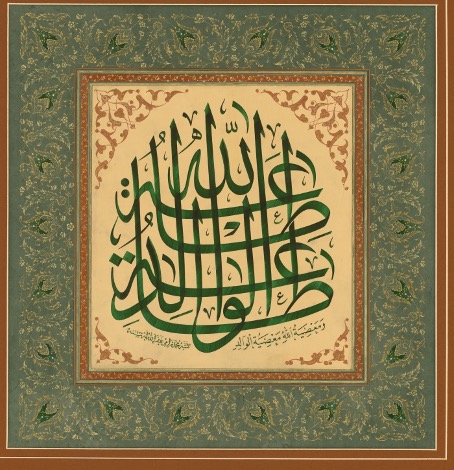 طاعة الله طاعة الوالد
ومعصية الله معصية الوالد